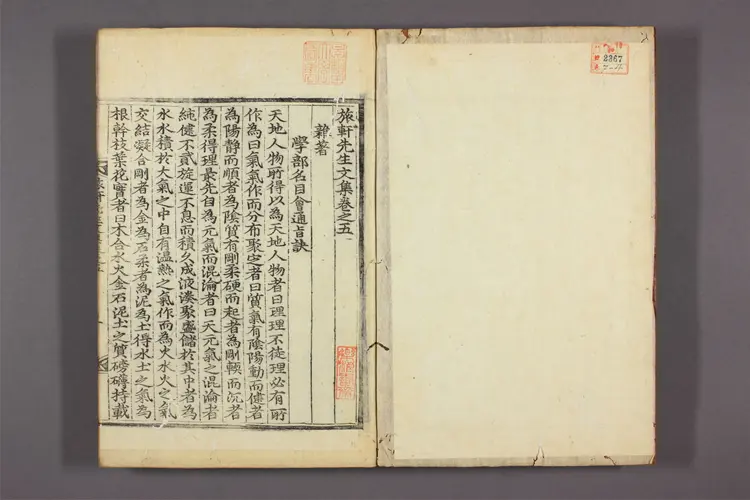 旅軒先生文集卷之五
雜著
學部名目會通旨訣
天地人物所得以為天地人物者曰理理不徒理必有所
作為曰氣氣作而分布聚定者曰質氣有陰陽動而健者
為陽靜而順者為陰質有剛柔硬而起者為剛輭而沉者
為柔得理最先自為元氣而混淪者曰天元氣之混淪者
純健不貳旋運不息而積久成液湊聚盛儲於其中者為
水水積於大氣之中自有温熱之氣作而為火水火之氣
交結凝合剛者為金為石柔者為泥為土得水土之氣為
根幹枝葉花實者曰木合水火金石泥土之質磅礴持載
2367